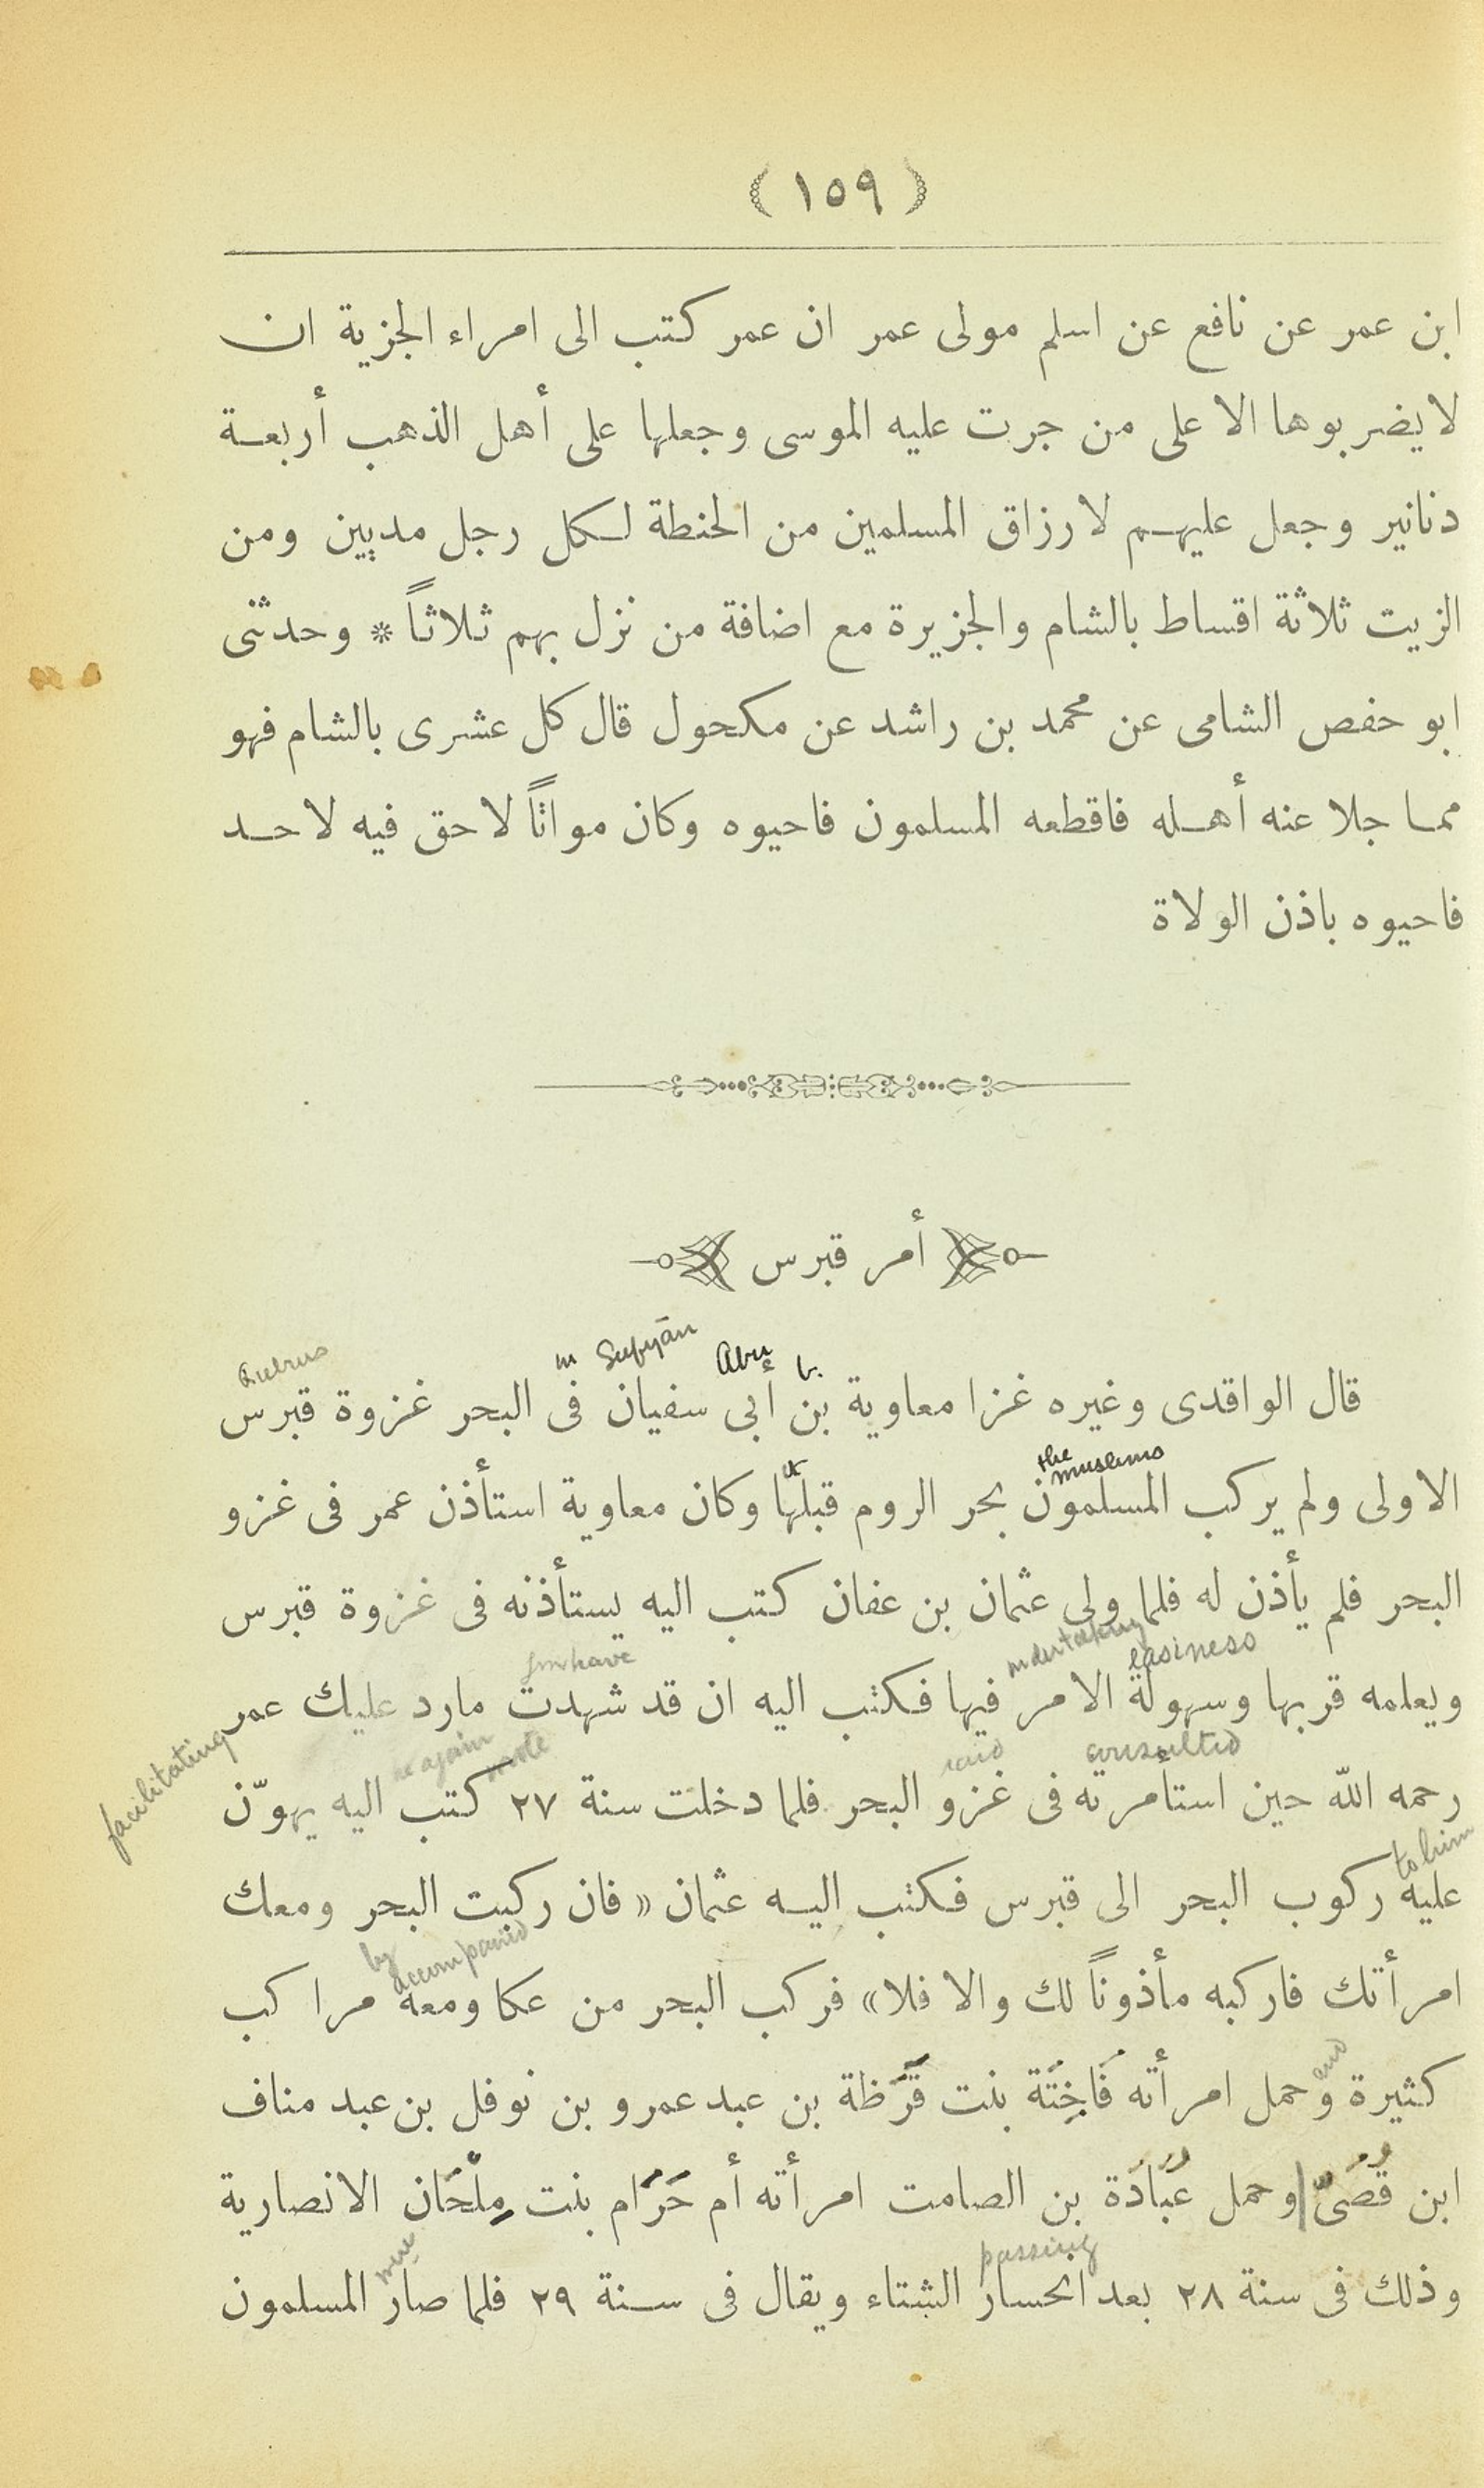 (١٥٩)
ابن عمر عن نافع عن اسلم مولى عمر ان عمر كتب الى امراء الجزية ان
لا يضربوها الا على من جرت عليه الموسى وجعلها على أهل الذهب أربعة
دنانير وجعل عليهم لارزاق المسلمين من الحنطة لكل رجل مديين ومن
الزيت ثلاثة اقساط بالشام والجزيرة مع اضافة من نزل بهم ثلاثاً * وحدثنى
ابو حفص الشامى عن محمد بن راشد عن مكحول قال كل عشرى بالشام فهو
مما جلا عنه أهله فاقطعه المسلمون فاحيوه وكان مواتاً لا حق فيه لاحد
فاحيوه باذن الولاة
أمر قبرس
Qubrus in Sufyān Abu b.
قال الواقدى وغيره غزا معاوية بن أبى سفيان فى البحر غزوة قبرس
the muslims
الاولى ولم يركب المسلمون بحر الروم قبلها وكان معاوية استأذن عمر فى غزو
البحر فلم يأذن له فلما ولى عثمان بن عفان كتب اليه يستأذنه فى غزوة قبرس
have undertaking easiness
ويعلمه قربها وسهولة الامر فيها فكتب اليه ان قد شهدت مارد عليك عمر
facilitating again wrote raid consulted
رحمه الله حين استأمرته فى غزو البحر فلما دخلت سنة ٢٧ كتب اليه يهوّن
to him
عليه ركوب البحر الى قبرس فكتب اليه عثمان « فان ركبت البحر ومعك
by accompanied
امرأتك فاركبه مأذوناً لك والا فلا » فركب البحر من عكا ومعه مراكب
and
كثيرة وحمل امرأته فَاخِتَة بنت قَرَظة بن عبد عمرو بن نوفل بن عبد مناف
ابن قُصَىّ وحمل عُبَادَة بن الصامت امرأته أم حَرَام بنت مِلْحَان الانصارية
were passing
وذلك فى سنة ٢٨ بعد انحسار الشتاء ويقال فى سنة ٢٩ فلما صار المسلمون